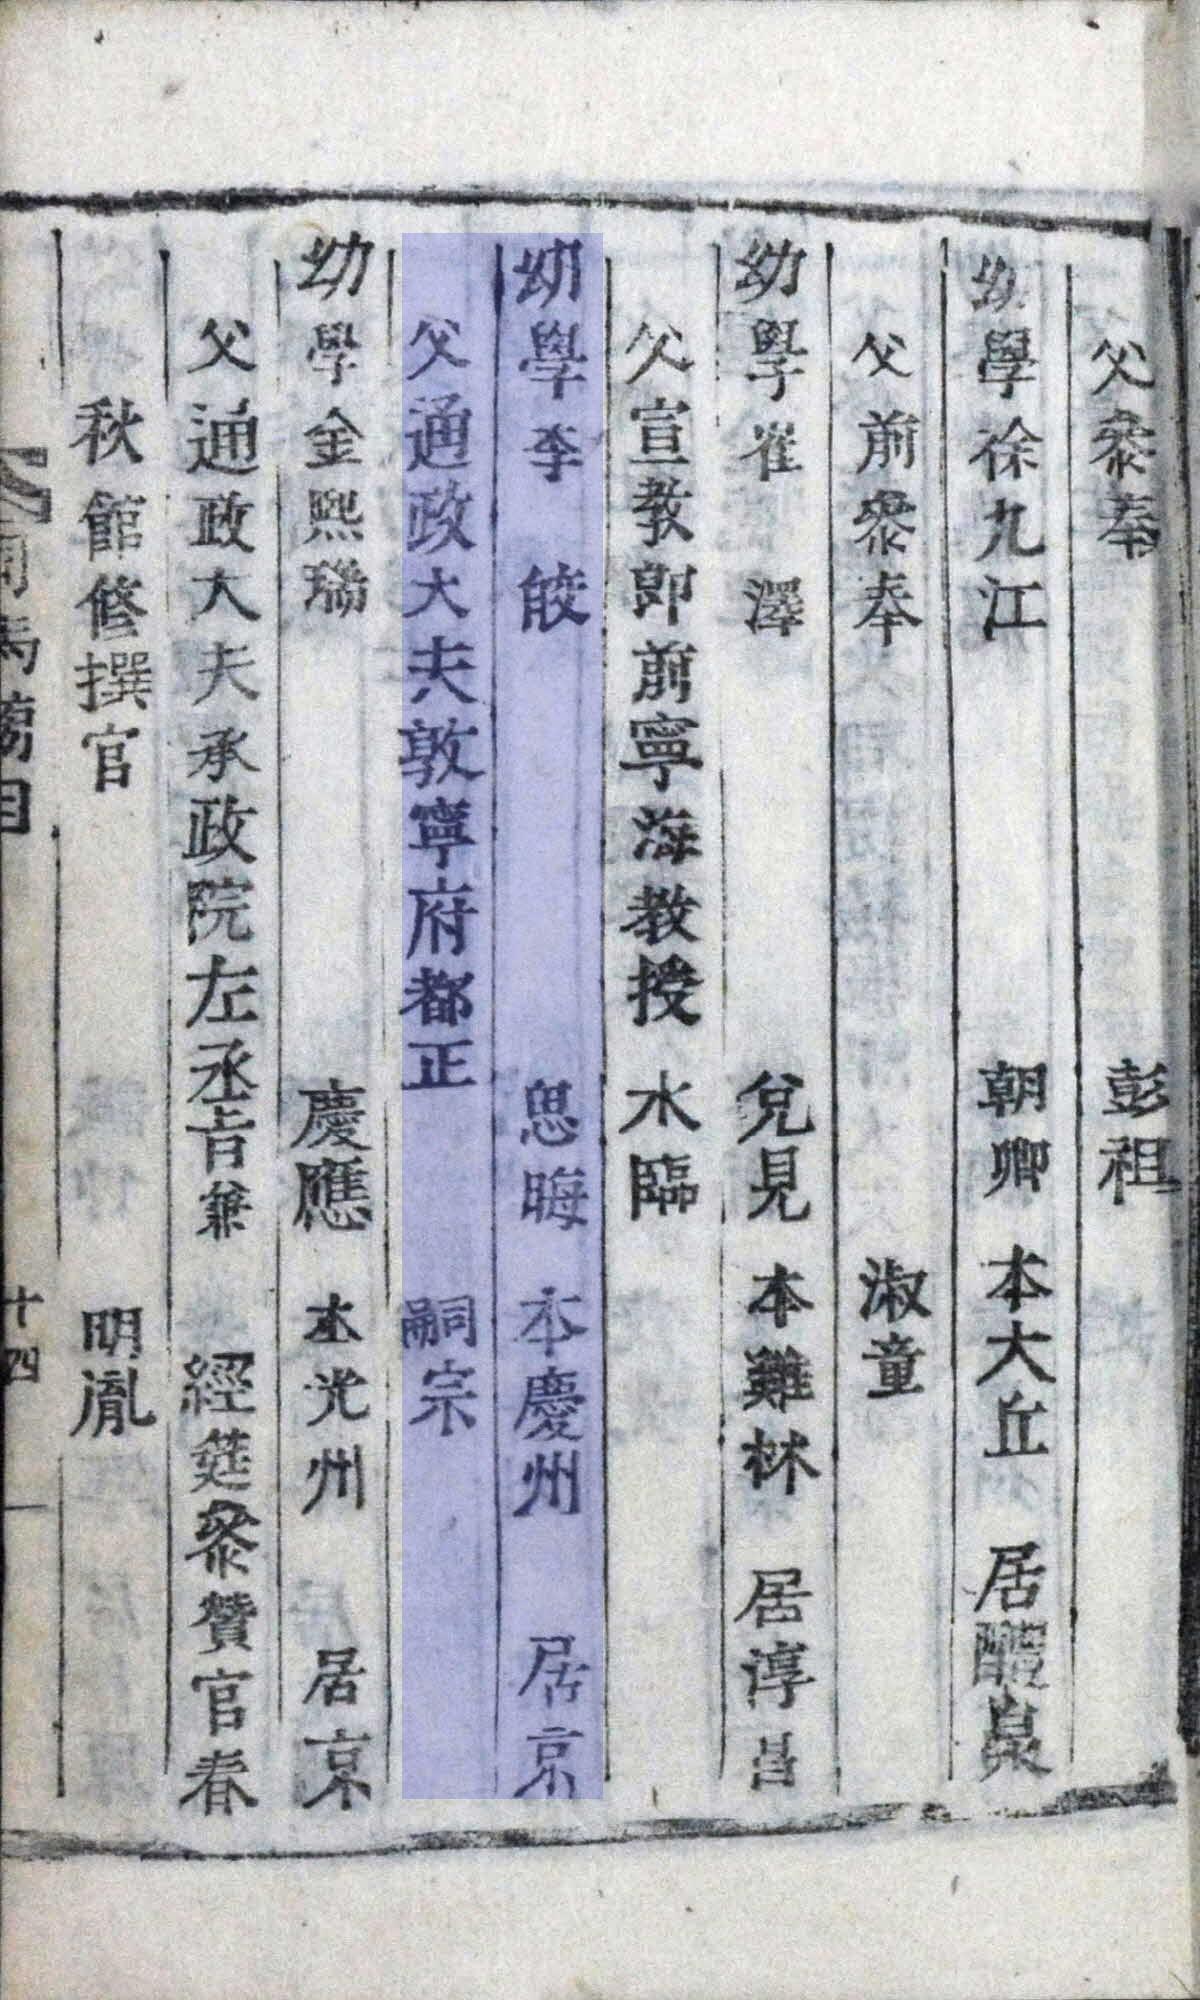 父參奉 彭祖
幼學徐九江 朝卿 本大丘 居醴泉
父前參奉 淑童
幼學崔澤 兌見 本雞林 居淳昌
父宣教郎前寧海教授 水臨
幼學李皎 思晦 本慶州 居京
父通政大夫敦寧府都正 嗣宗
幼學金熙瑞 慶應 本光州 居京
父通政大夫承政院左丞旨兼 經筵參贊官春
秋館修撰官 明胤
司馬榜目 十四